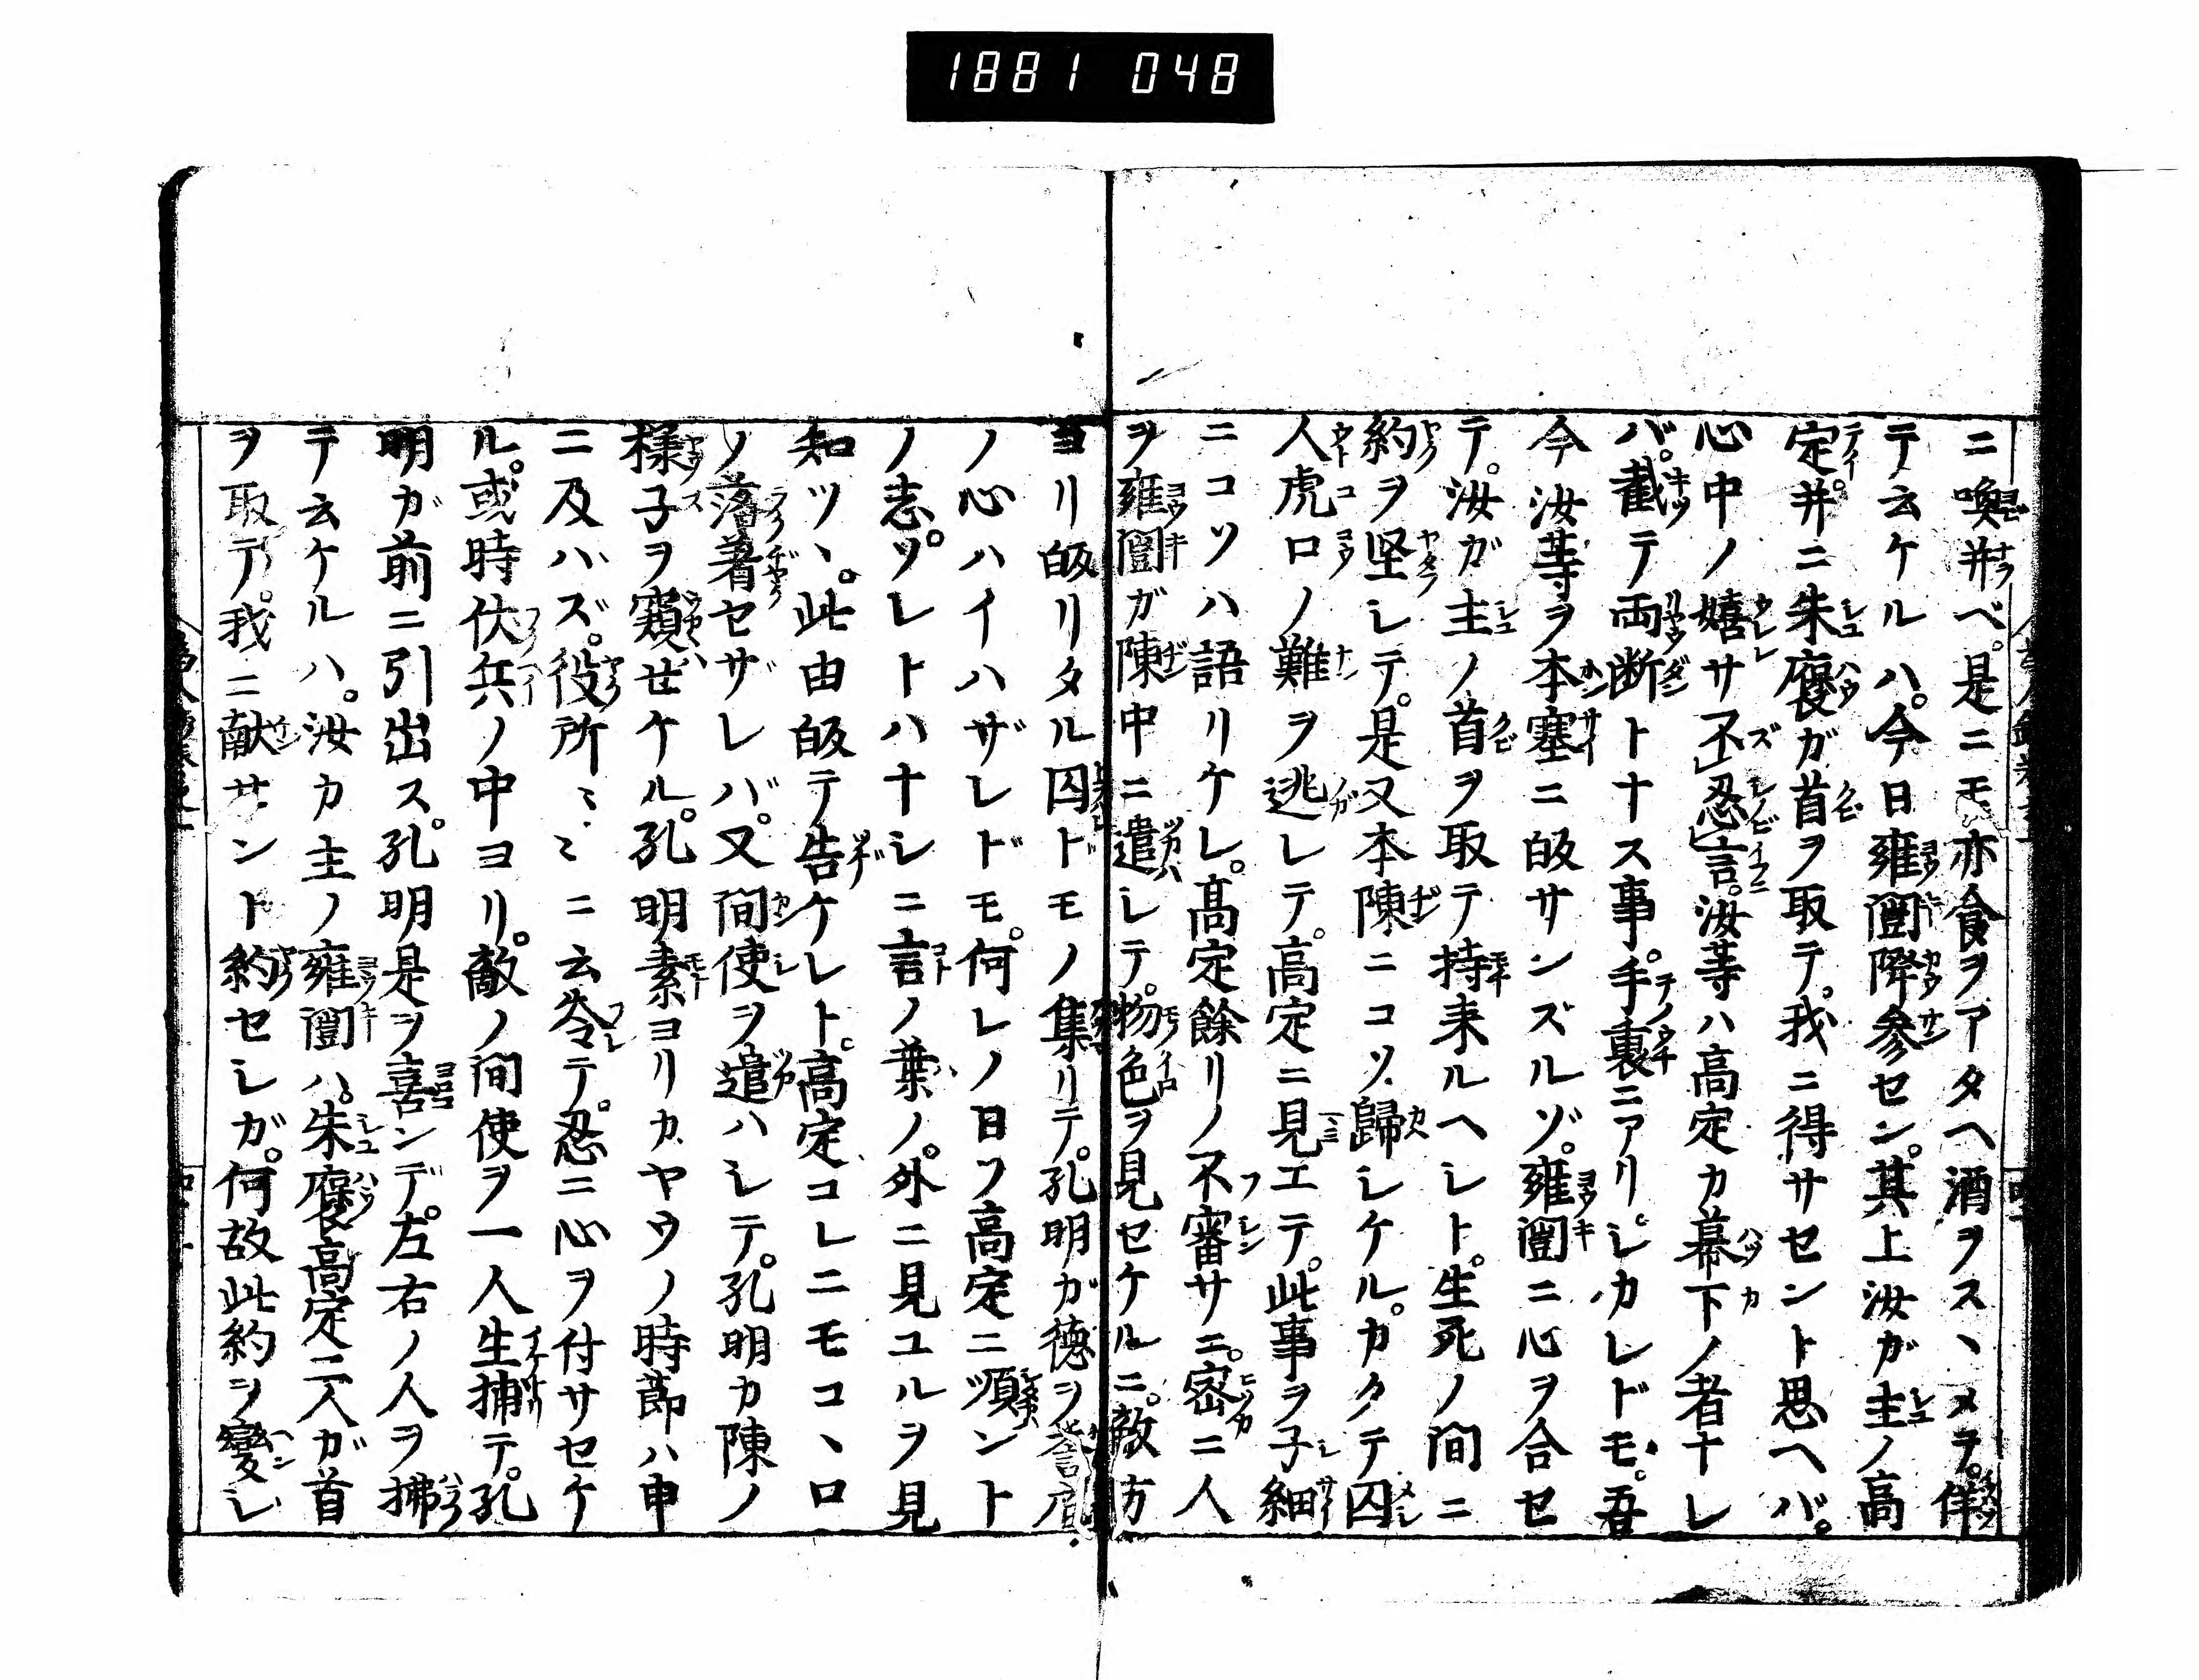 1881 048
ニ喚并ベ。是ニモ亦食ヲアタヘ酒ヲスヽメテ。佯
テ云ケルハ。今日雍闓降参セン。其上汝ガ主ノ高
定并ニ朱褒ガ首ヲ取テ。我ニ得サセント思ヘバ。
心中ノ嬉サ不忍言。汝等ハ高定カ幕下ノ者ナレ
バ。截テ両断トナス事。手裏ニアリ。シカレドモ。吾
今汝等ヲ本塞ニ皈サンズルゾ。雍闓ニ心ヲ合セ
テ。汝ガ主ノ首ヲ取テ持来ルヘシト。生死ノ間ニ
約ヲ堅シテ。是又本陳ニコソ歸シケル。カクテ囚
人虎口ノ難ヲ逃レテ。高定ニ見エテ。此事ヲ子細
ニコソハ語リケレ。高定餘リノ不審サニ。密ニ人
ヲ雍闓ガ陳中ニ遣シテ。物色ヲ見セケルニ。敵方
ヨリ皈リタル囚ドモノ集リテ。孔明ガ徳ヲ誉
ノ心ハイハザレドモ。何レノ日フ高定ニ順ント
ノ志。ソレトハナシニ言ノ葉ノ。外ニ見ユルヲ見
知ツヽ。此由皈テ告ケレト。高定コレニモコヽロ
ノ落著セザレバ。又間使ヲ遣ハシテ。孔明カ陳ノ
様子ヲ窺セケル。孔明素ヨリカヤウノ時節ハ申
ニ及バズ。役所〻〻ニ云令テ。忍ニ心ヲ付サセケ
ル。或時伏兵ノ中ヨリ。敵ノ間使ヲ一人生捕テ。孔
明ガ前ニ引出ス。孔明是ヲ喜ンデ。左右ノ人ヲ拂
テ云ケルハ。汝カ主ノ雍闓ハ。朱褒高定二人ガ首
ヲ取テ。我ニ献サント約セシガ。何故此約ヲ變シ